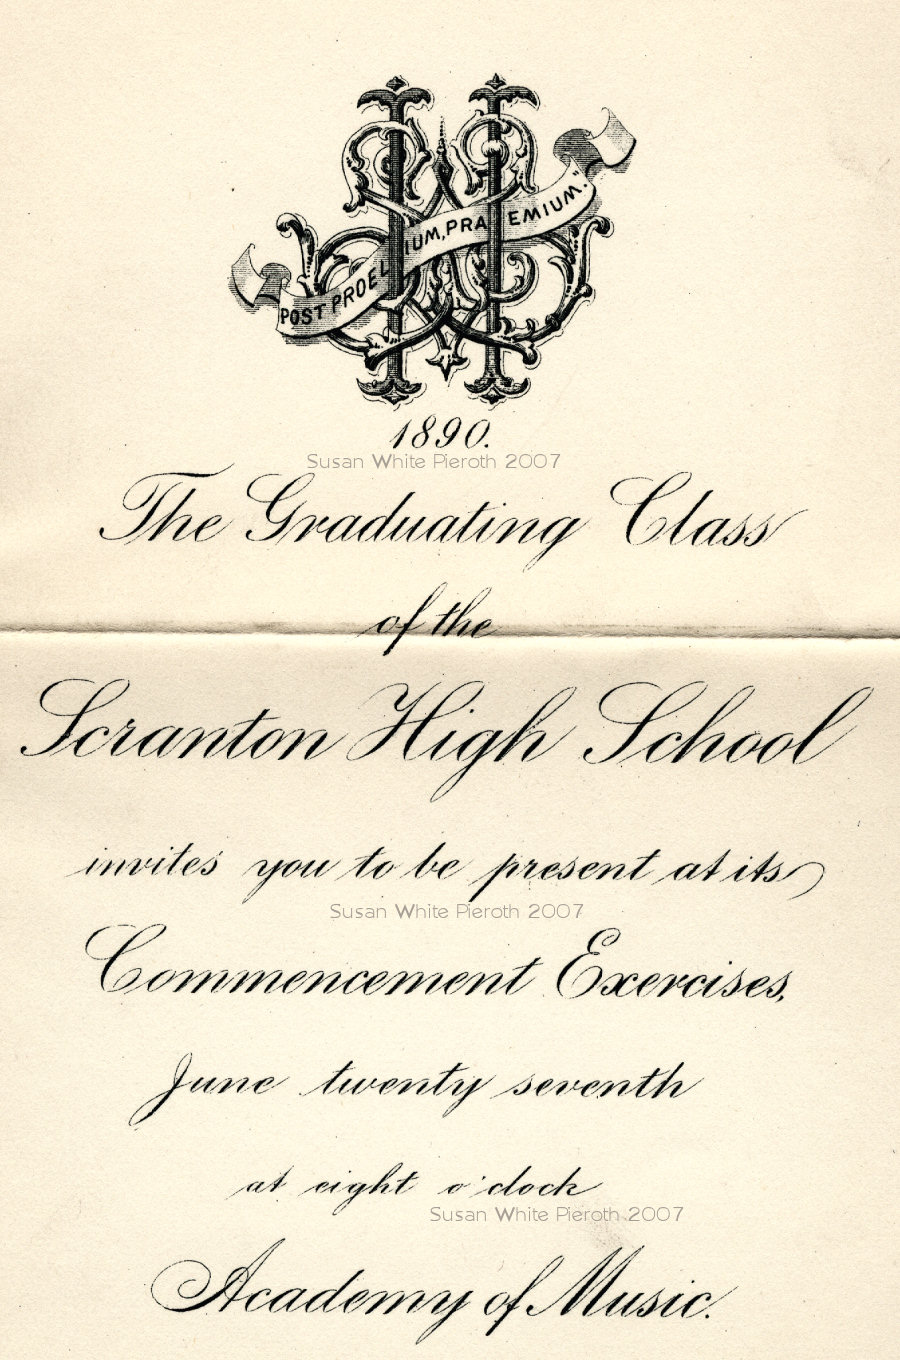 POST PROELIUM, PRAEMIUM."
1890.
Susan White Pieroth 2007
The Graduating Class
of the
Scranton High School
invites you to be present at its
Susan White Pieroth 2007
Commencement Exercises,
June twenty seventh
at eight o'clock
Susan White Pieroth 2007
Academy of Music.